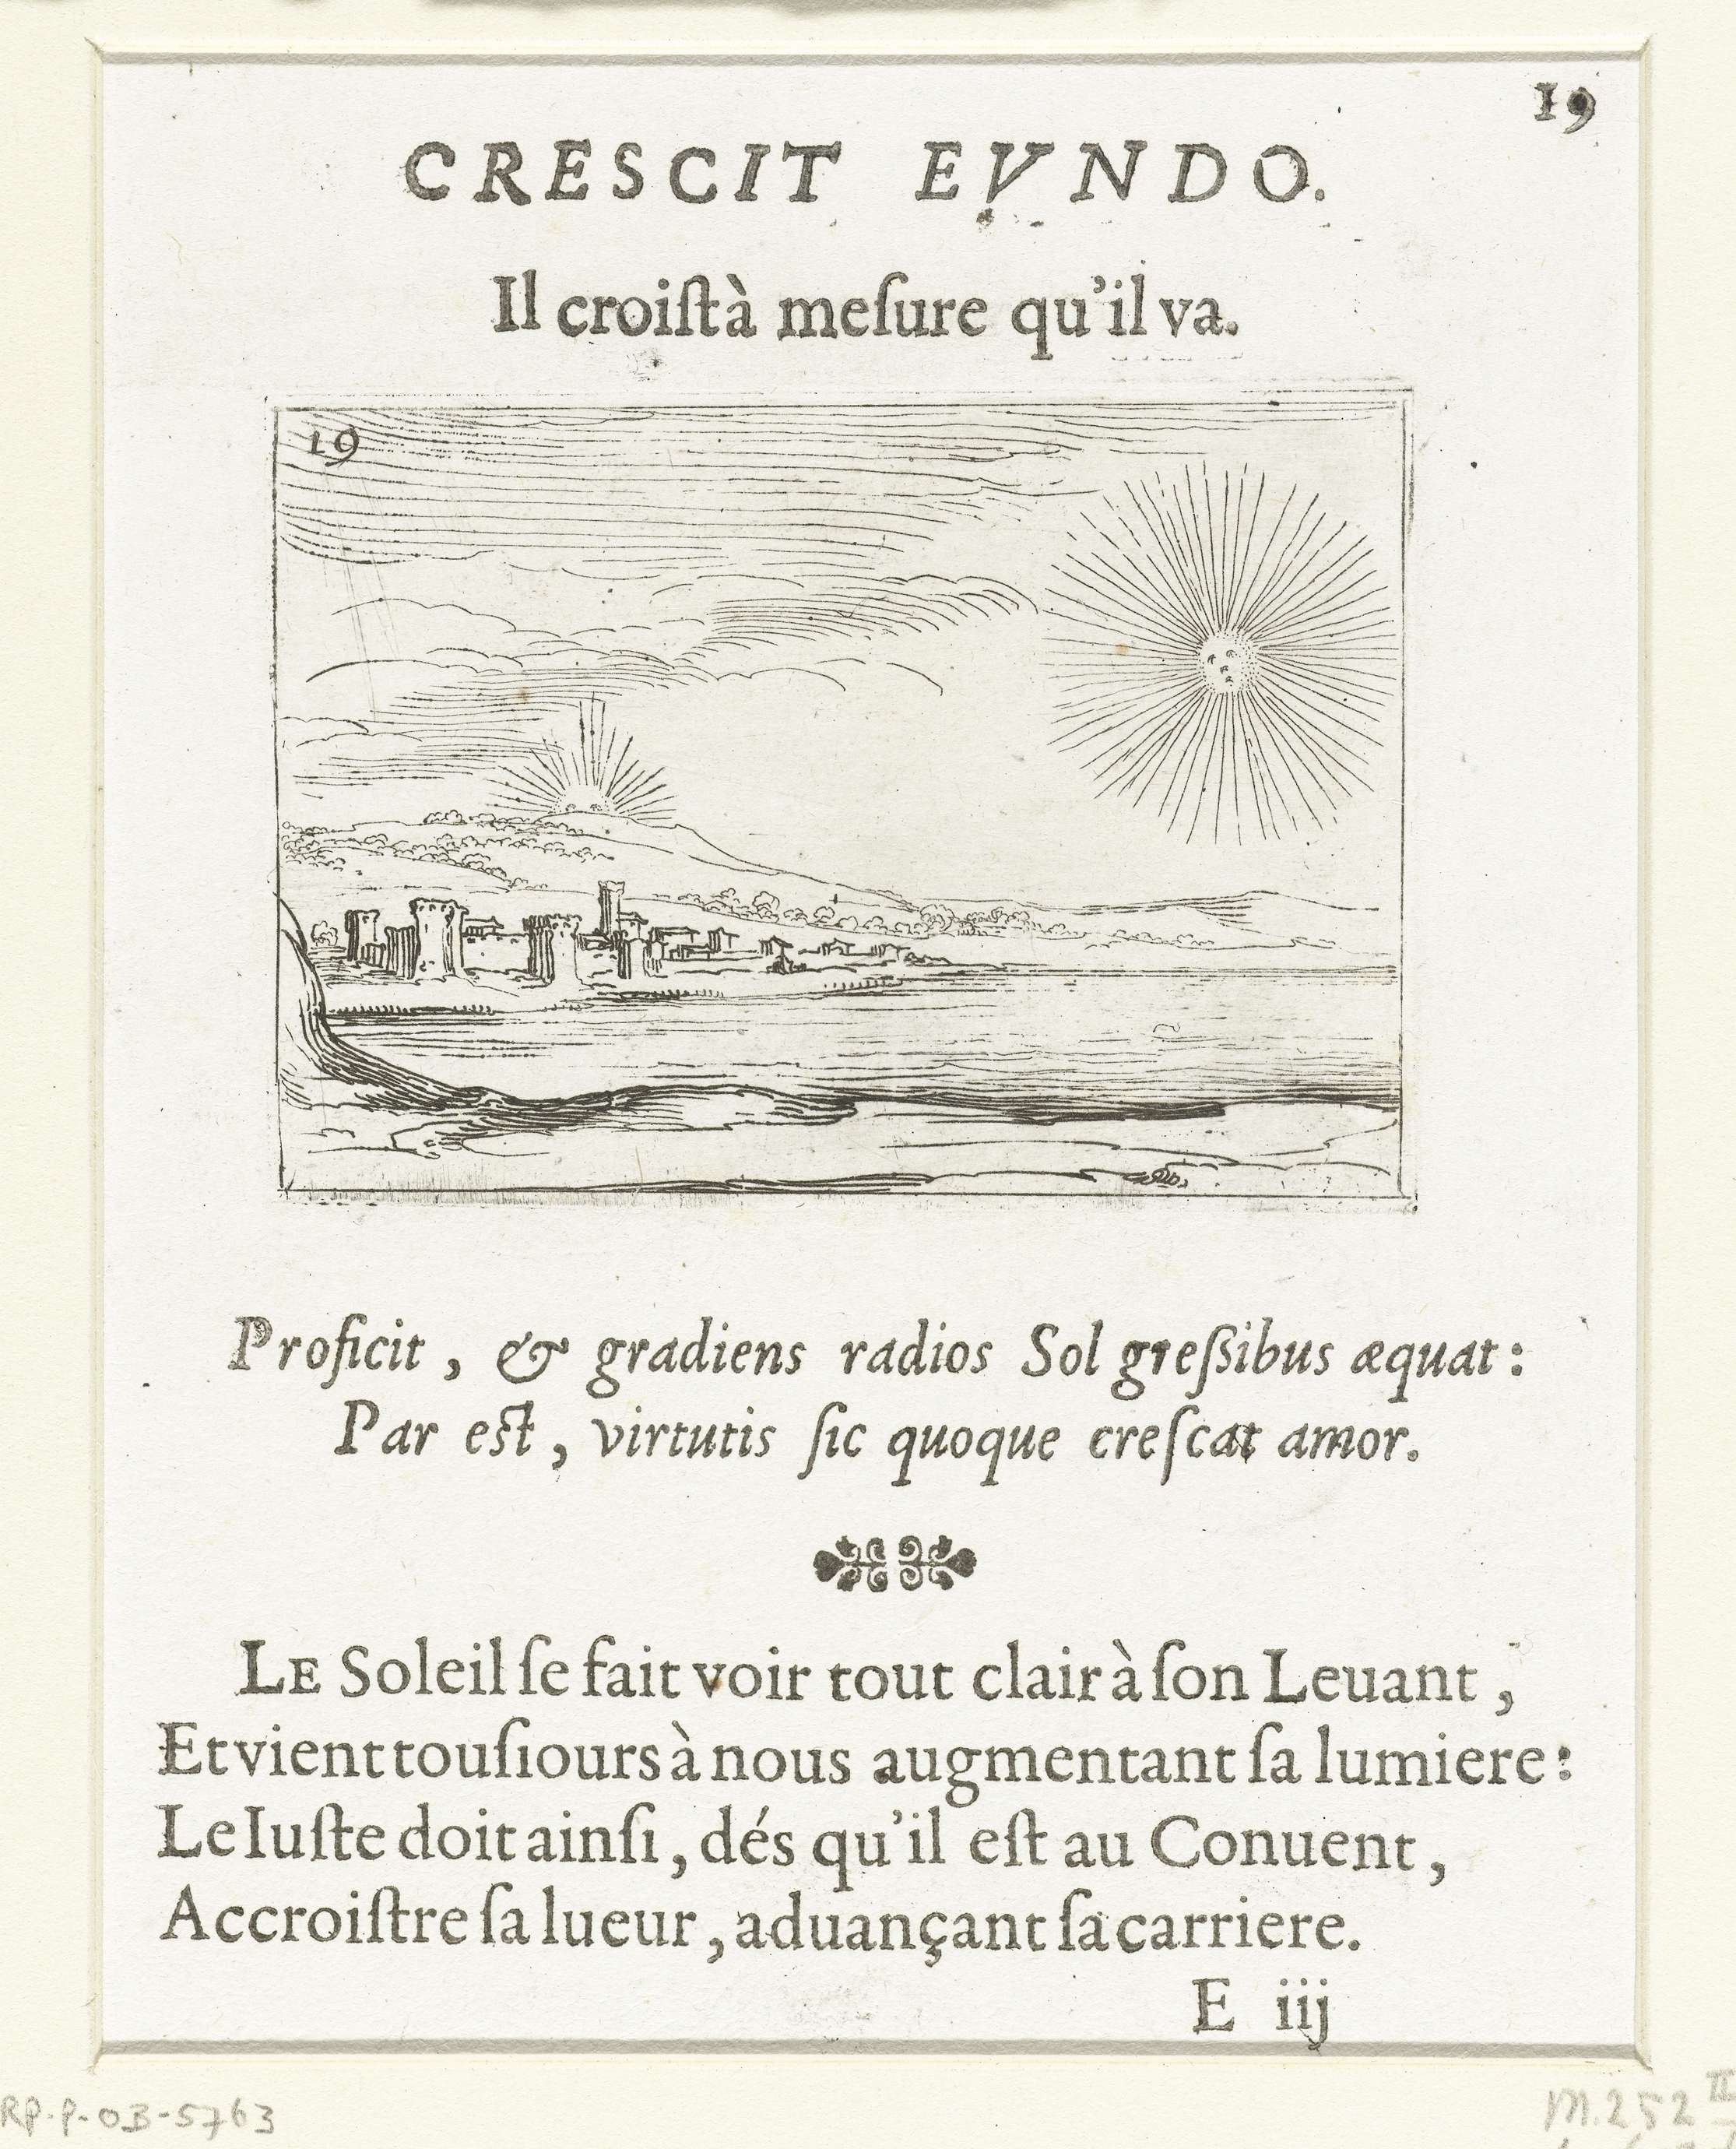 19
CRESCIT EVNDO.
Il croiſt à meſure qu'il va.
19
Proficit, & gradiens radios Sol greſſibus æquat:
Par est, virtutis ſic quoque creſcat amor.
LE Soleil ſe fait voir tout clair à ſon Leuant,
Et vient touſiours à nous augmentant ſa lumiere:
Le Iuſte doit ainſi, dés qu'il eſt au Conuent,
Accroiſtre ſa lueur, aduançant ſa carriere.
E iij
RP-P-OB-5763
M.252 II